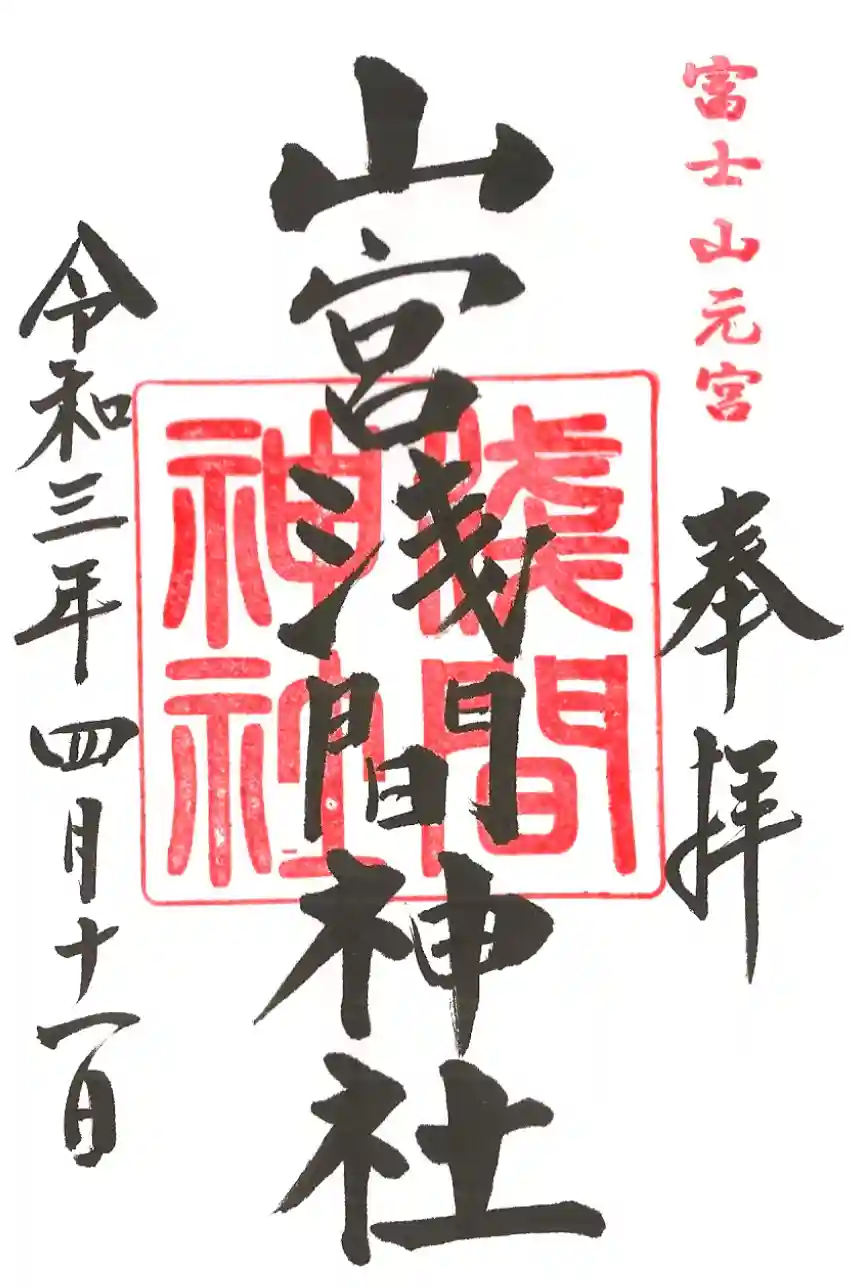 富士山元宮
奉拝
山宮浅間神社
淺間
神社
令和三年四月十一日